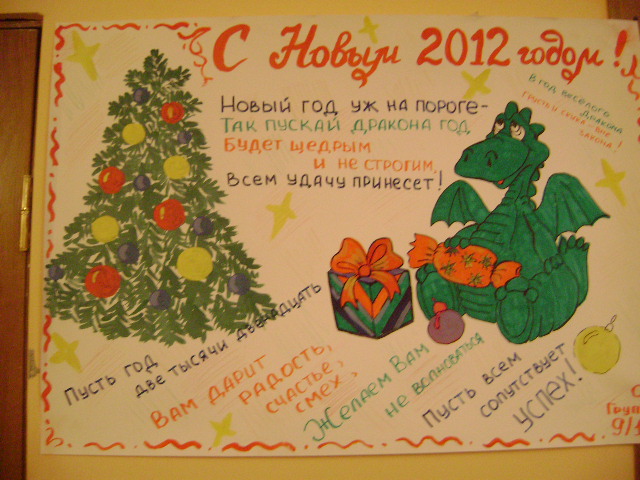 С Новым 2012 годом!
В год веселого
дракона
грусть и скука - вне
закона!
Новый год уж на пороге-
Так пускай дракона год
Будет щедрым
и не строгим,
Всем удачу принесет!
Пусть год
две тысячи двенадцать
Вам дарит
радость,
счастье,
смех,
Желаем Вам
не волноваться
Пусть всем
сопутствует
успех!
Груп